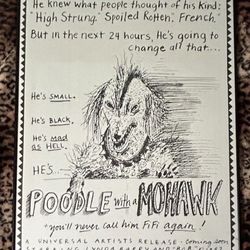 He knew what people thought of his kind:
"High Strung." "Spoiled Rotten," "French."
But in the next 24 hours, He's going to
change all that....
He's SMALL.
He's BLACK.
He's mad
as HELL.
HE'S...
POODLE with a MOHAWK
"you'll never call him FiFi again!"
A UNIVERSAL ARTISTS RELEASE · coming soon
STARRING LYNDA BARRY AND "BOB"